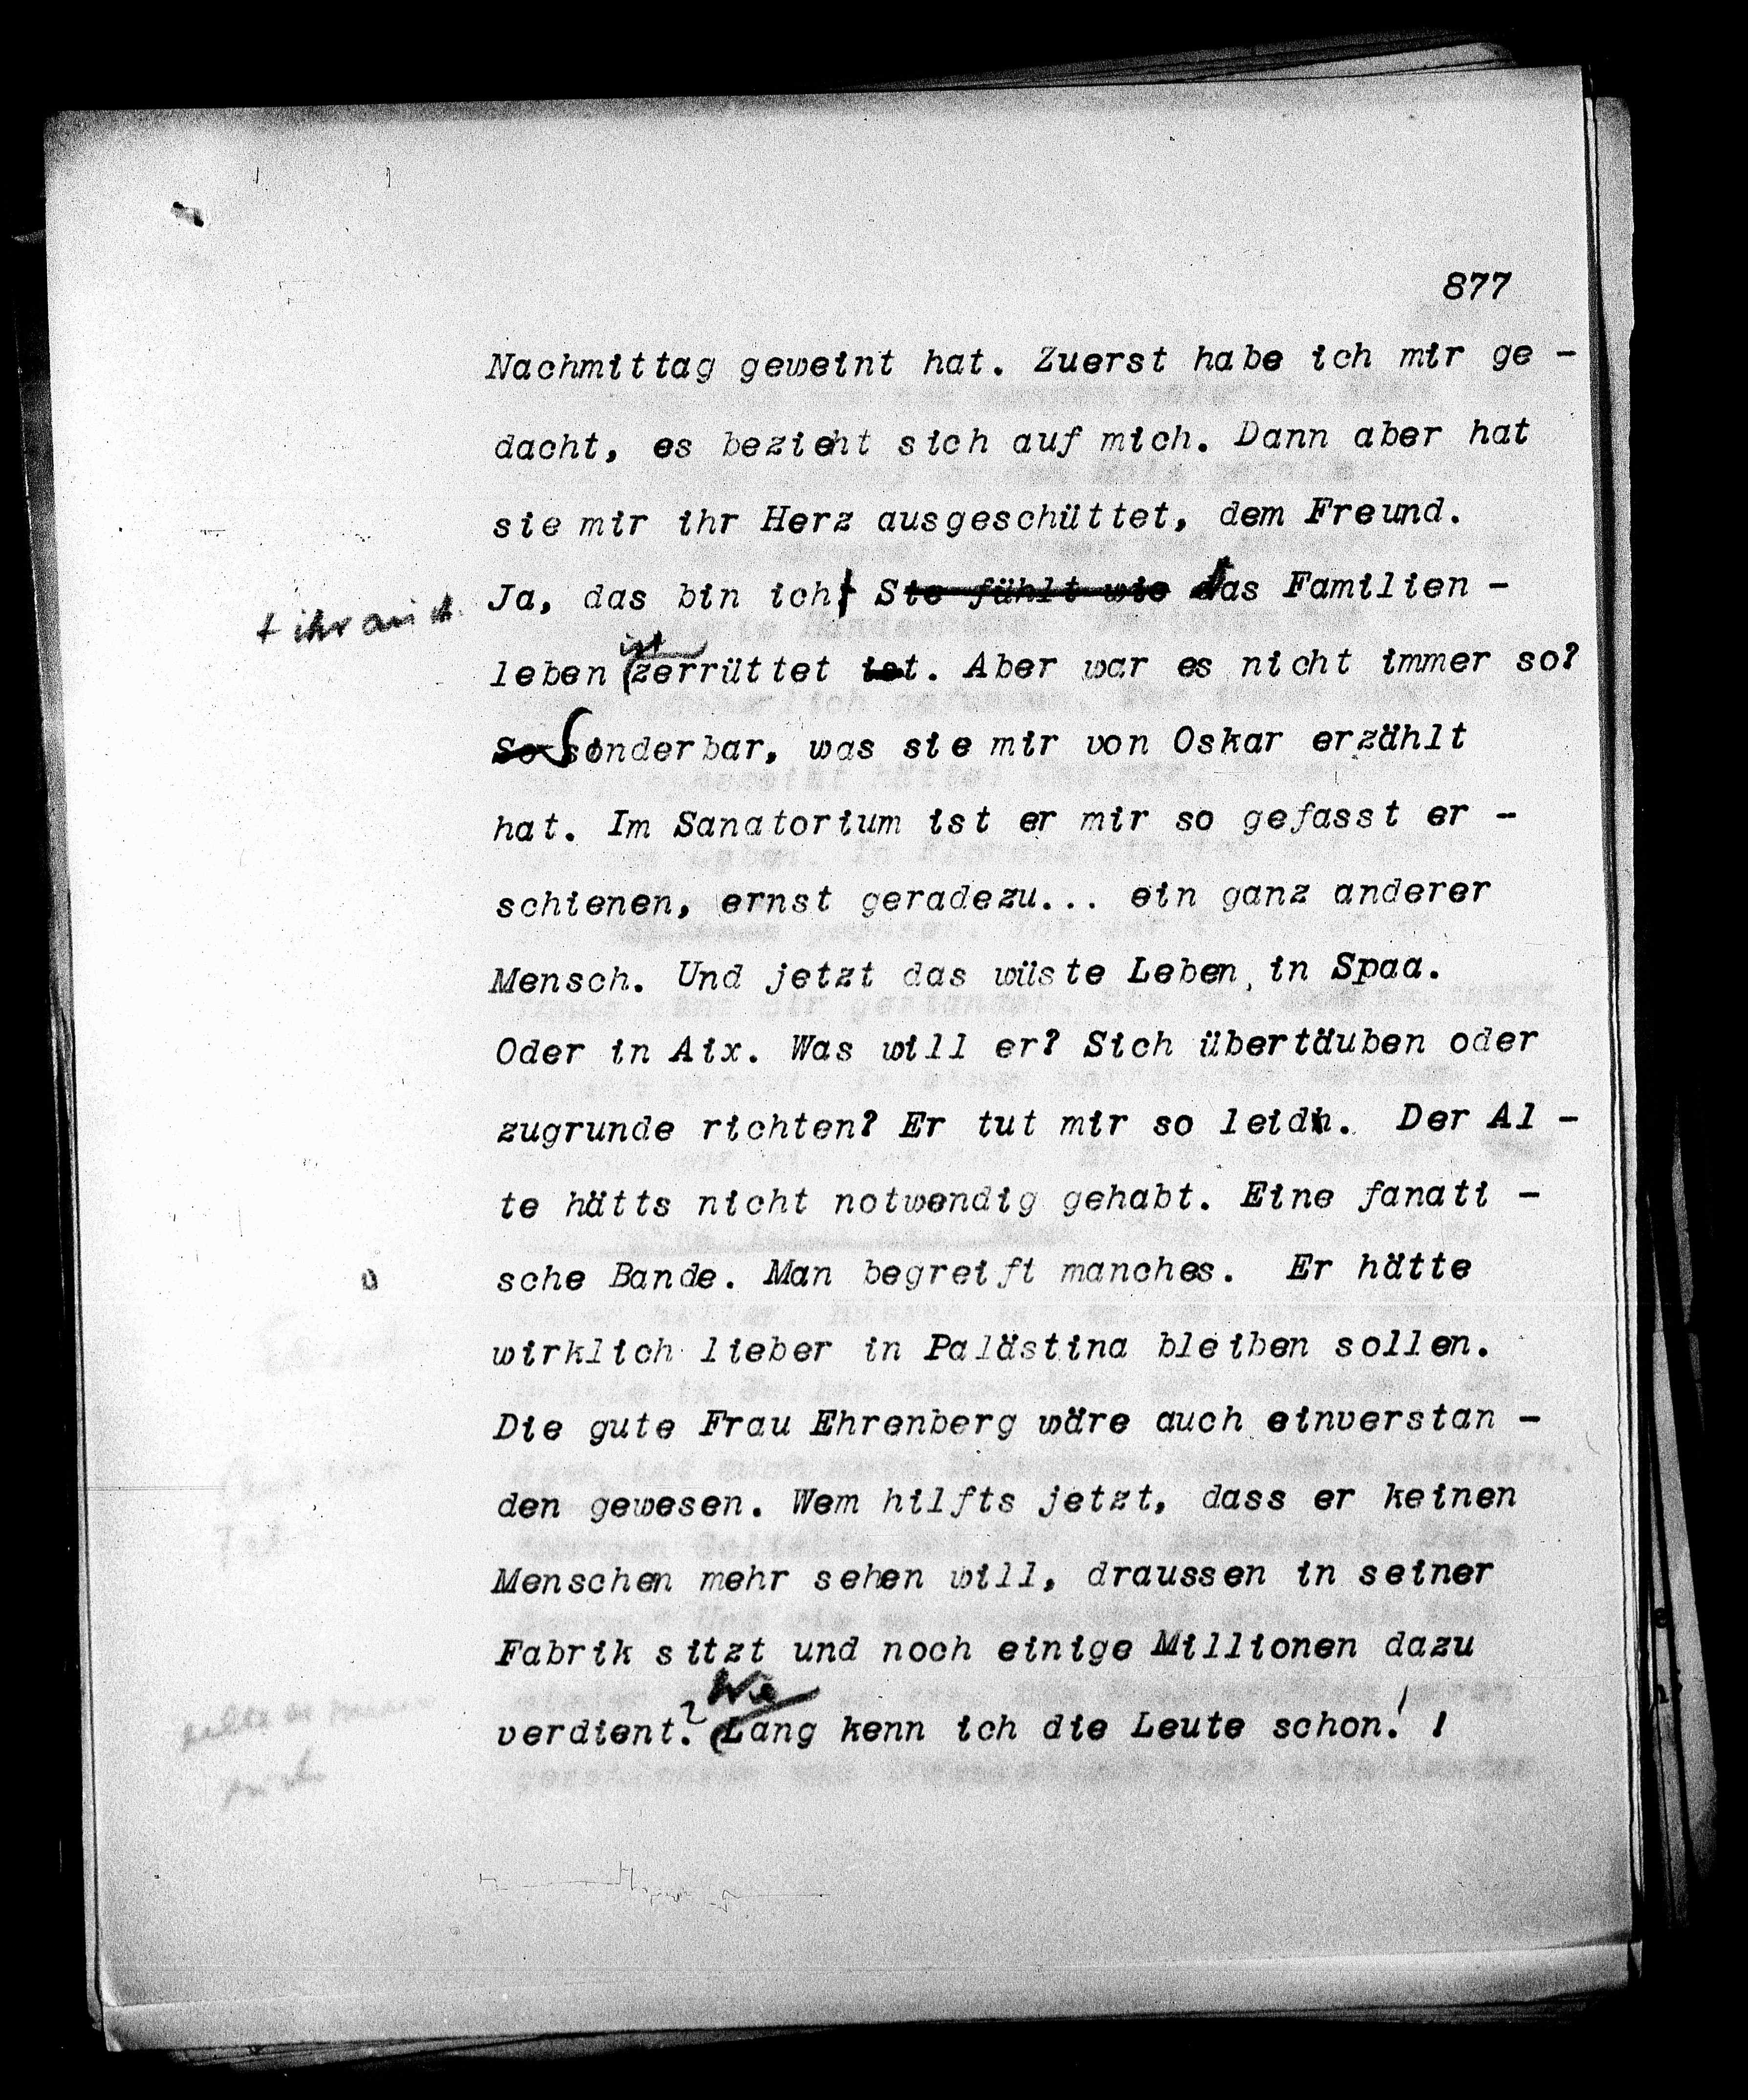 877
Nachmittag geweint hat. Zuerst habe ich mir ge -
dacht, es bezieht sich auf mich. Dann aber hat
sie mir ihr Herz ausgeschüttet, dem Freund.
Ja, das bin ich Sie fühlt wie das Familien -
+ ihr auch
ist
leben zerrüttet ist. Aber war es nicht immer so?
So sonderbar, was sie mir von Oskar erzählt
hat. Im Sanatorium ist er mir so gefasst er -
schienen, ernst geradezu... ein ganz anderer
Mensch. Und jetzt das wüste Leben in Spaa.
Oder in Aix. Was will er? Sich übertäuben oder
zugrunde richten? Er tut mir so leid. Der Al -
te hätts nicht notwendig gehabt. Eine fanati -
sche Bande. Man begreift manches. Er hätte
wirklich lieber in Palästina bleiben sollen.
Die gute Frau Ehrenberg wäre auch einverstan -
den gewesen. Wem hilfts jetzt, dass er keinen
Menschen mehr sehen will, draussen in seiner
Fabrik sitzt und noch einige Millionen dazu
Wie
verdient? Lang kenn ich die Leute schon! !